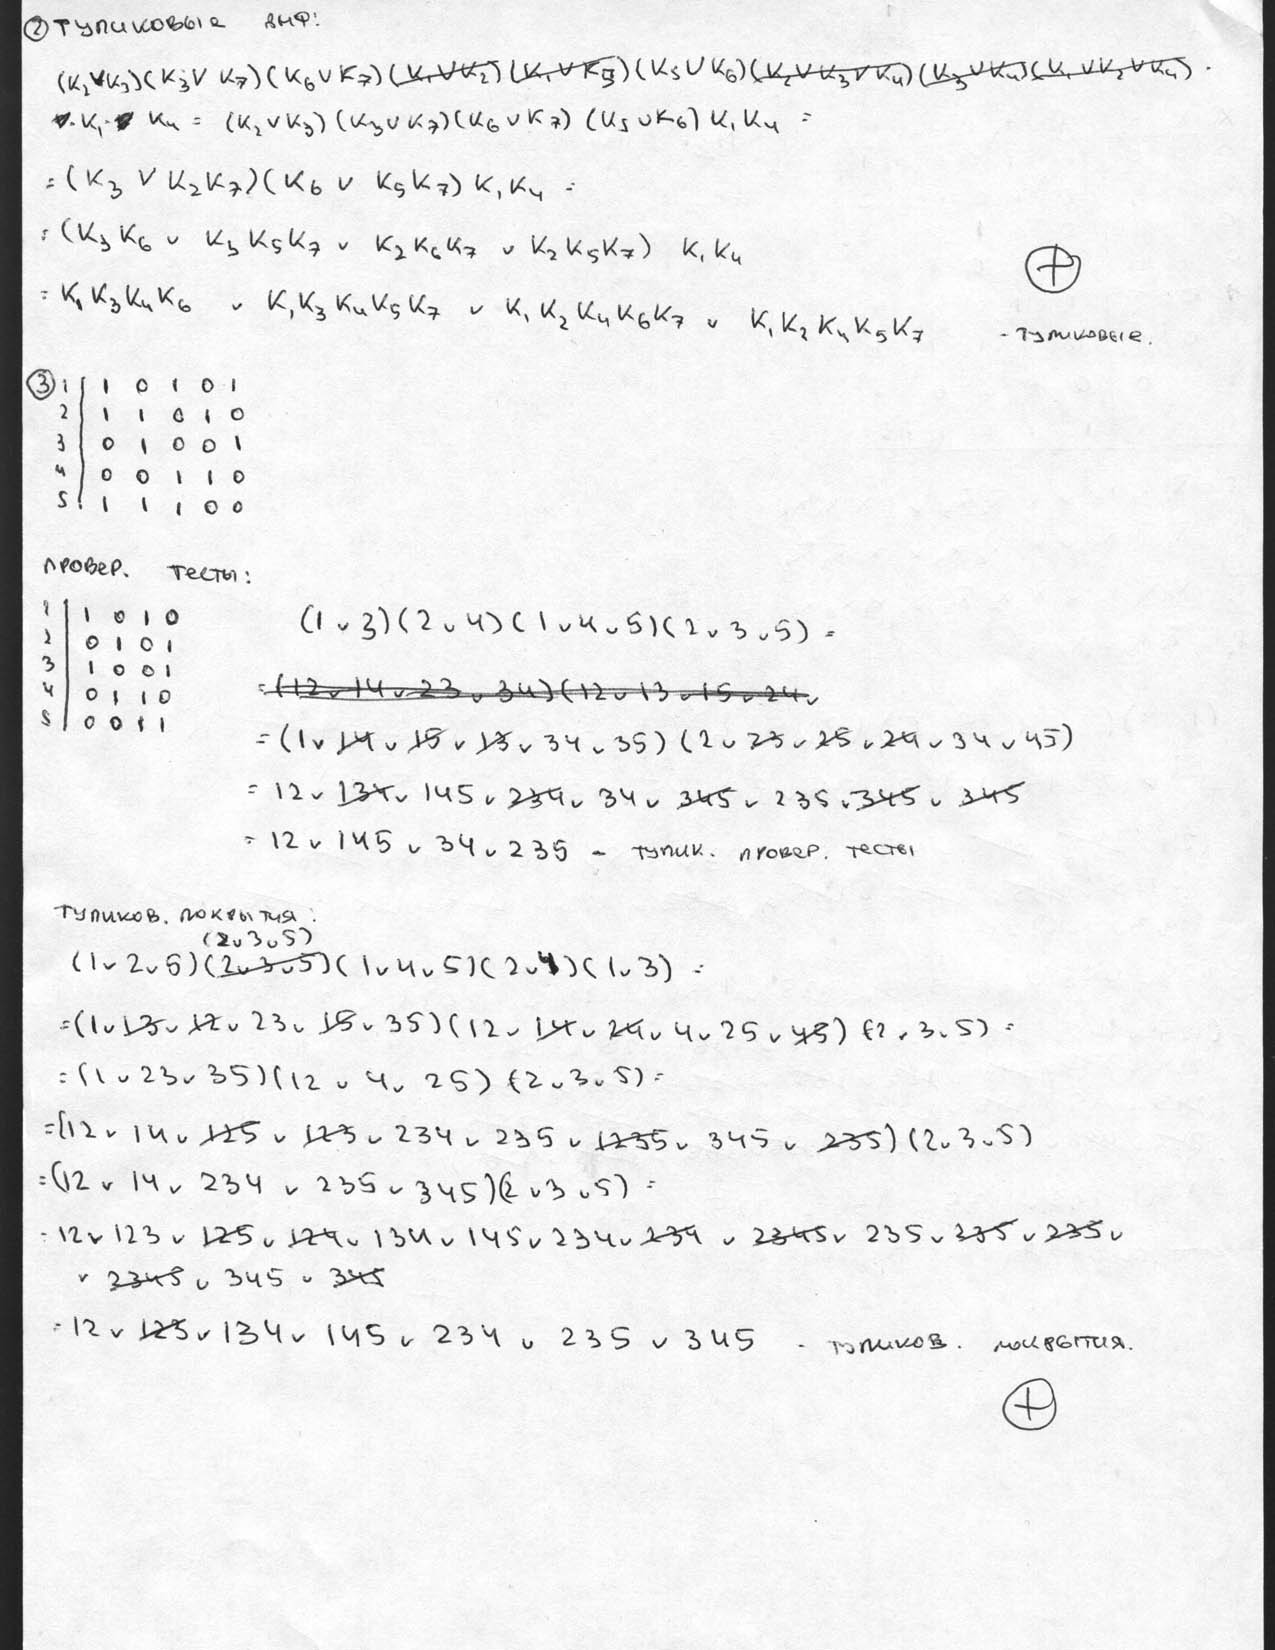 ② ТУПИКОВЫЕ ДНФ:
(K₂∨K₃)(K₃∨K₇)(K₆∨K₇)(K₁∨K₂)(K₁∨K₅)(K₅∨K₆)(K₂∨K₃∨K₄)(K₃∨K₄)(K₁∨K₂∨K₄)·
·K₁· K₄ = (K₂∨K₃)(K₃∨K₇)(K₆∨K₇)(K₅∨K₆)K₁K₄ =
= (K₃ ∨ K₂K₇)(K₆ ∨ K₅K₇)K₁K₄ =
= (K₃K₆ ∨ K₃K₅K₇ ∨ K₂K₆K₇ ∨ K₂K₅K₇) K₁K₄
= K₁K₃K₄K₆ ∨ K₁K₃K₄K₅K₇ ∨ K₁K₂K₄K₆K₇ ∨ K₁K₂K₄K₅K₇ - ТУПИКОВЫЕ.
③ 1 | 1 0 1 0 1
2 | 1 1 0 1 0
3 | 0 1 0 0 1
4 | 0 0 1 1 0
5 | 1 1 1 0 0
ПРОВЕР. ТЕСТЫ:
1 | 1 0 1 0
2 | 0 1 0 1
3 | 1 0 0 1
4 | 0 1 1 0
5 | 0 0 1 1
(1∨3)(2∨4)(1∨4∨5)(2∨3∨5) =
= (12∨14∨23∨34)(12∨13∨15∨24∨
= (1∨14∨15∨13∨34∨35)(2∨23∨25∨24∨34∨45)
= 12∨134∨145∨234∨34∨345∨235∨345∨345
= 12∨145∨34∨235 – ТУПИК. ПРОВЕР. ТЕСТЫ
ТУПИКОВ. ПОКРЫТИЯ:
(2∨3∨5)
(1∨2∨5)(2∨3∨5)(1∨4∨5)(2∨4)(1∨3) =
= (1∨13∨12∨23∨15∨35)(12∨14∨24∨4∨25∨45)(2∨3∨5) =
= (1∨23∨35)(12∨4∨25)(2∨3∨5) =
= (12∨14∨125∨123∨234∨235∨1235∨345∨235)(2∨3∨5)
= (12∨14∨234∨235∨345)(2∨3∨5) =
= 12∨123∨125∨124∨134∨145∨234∨234∨2345∨235∨235∨235∨
∨2345∨345∨345
= 12∨123∨134∨145∨234∨235∨345 - ТУПИКОВ. ПОКРЫТИЯ.